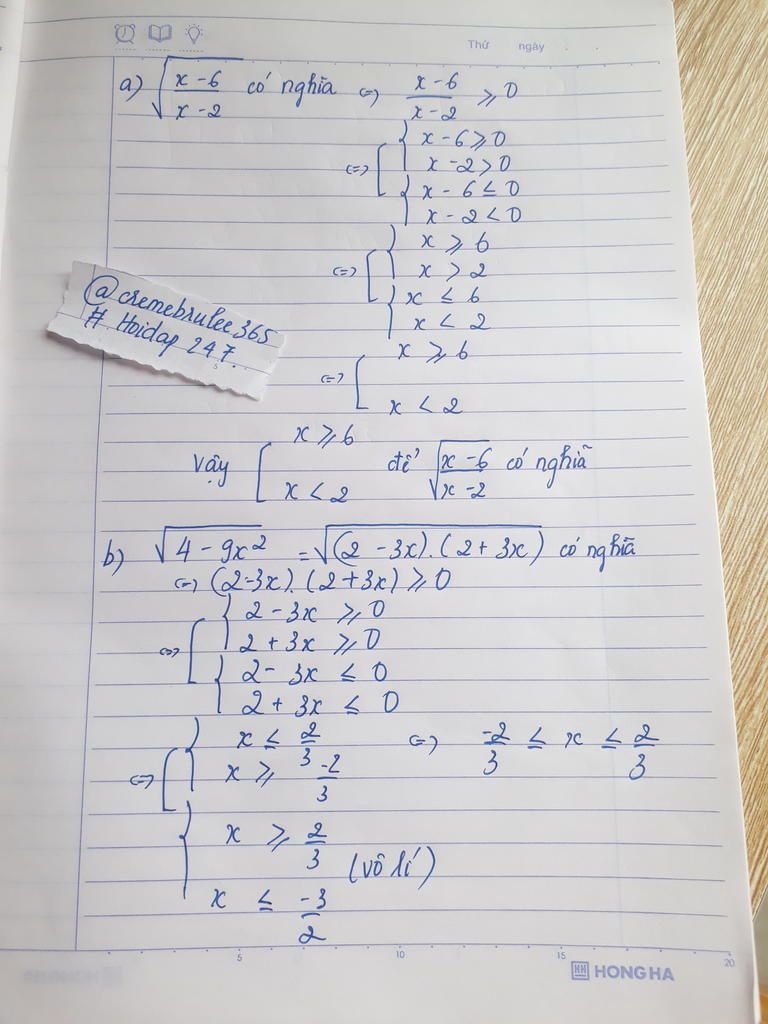 Thứ ngày
a) √((x-6)/(x-2)) có nghĩa <=> (x-6)/(x-2) ≥ 0
<=> [ { x - 6 ≥ 0
x - 2 > 0
{ x - 6 ≤ 0
x - 2 < 0
<=> [ { x ≥ 6
x > 2
{ x ≤ 6
x < 2
<=> [ x ≥ 6
x < 2
@cremebrulee365
# Hoidap 247.
Vậy [ x ≥ 6
x < 2 để √((x-6)/(x-2)) có nghĩã
b) √(4 - 9x²) = √((2 - 3x).(2 + 3x)) có nghĩa
<=> (2-3x).(2+3x) ≥ 0
<=> [ { 2 - 3x ≥ 0
2 + 3x ≥ 0
{ 2 - 3x ≤ 0
2 + 3x ≤ 0
<=> [ { x ≤ 2/3 <=> -2/3 ≤ x ≤ 2/3
x ≥ -2/3
{ x ≥ 2/3
(vô lí)
x ≤ -3/2
5 10 15 20
HH HONG HA